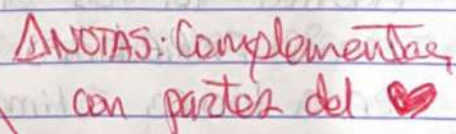 ANOTAS: Complementar
con partes del ❤